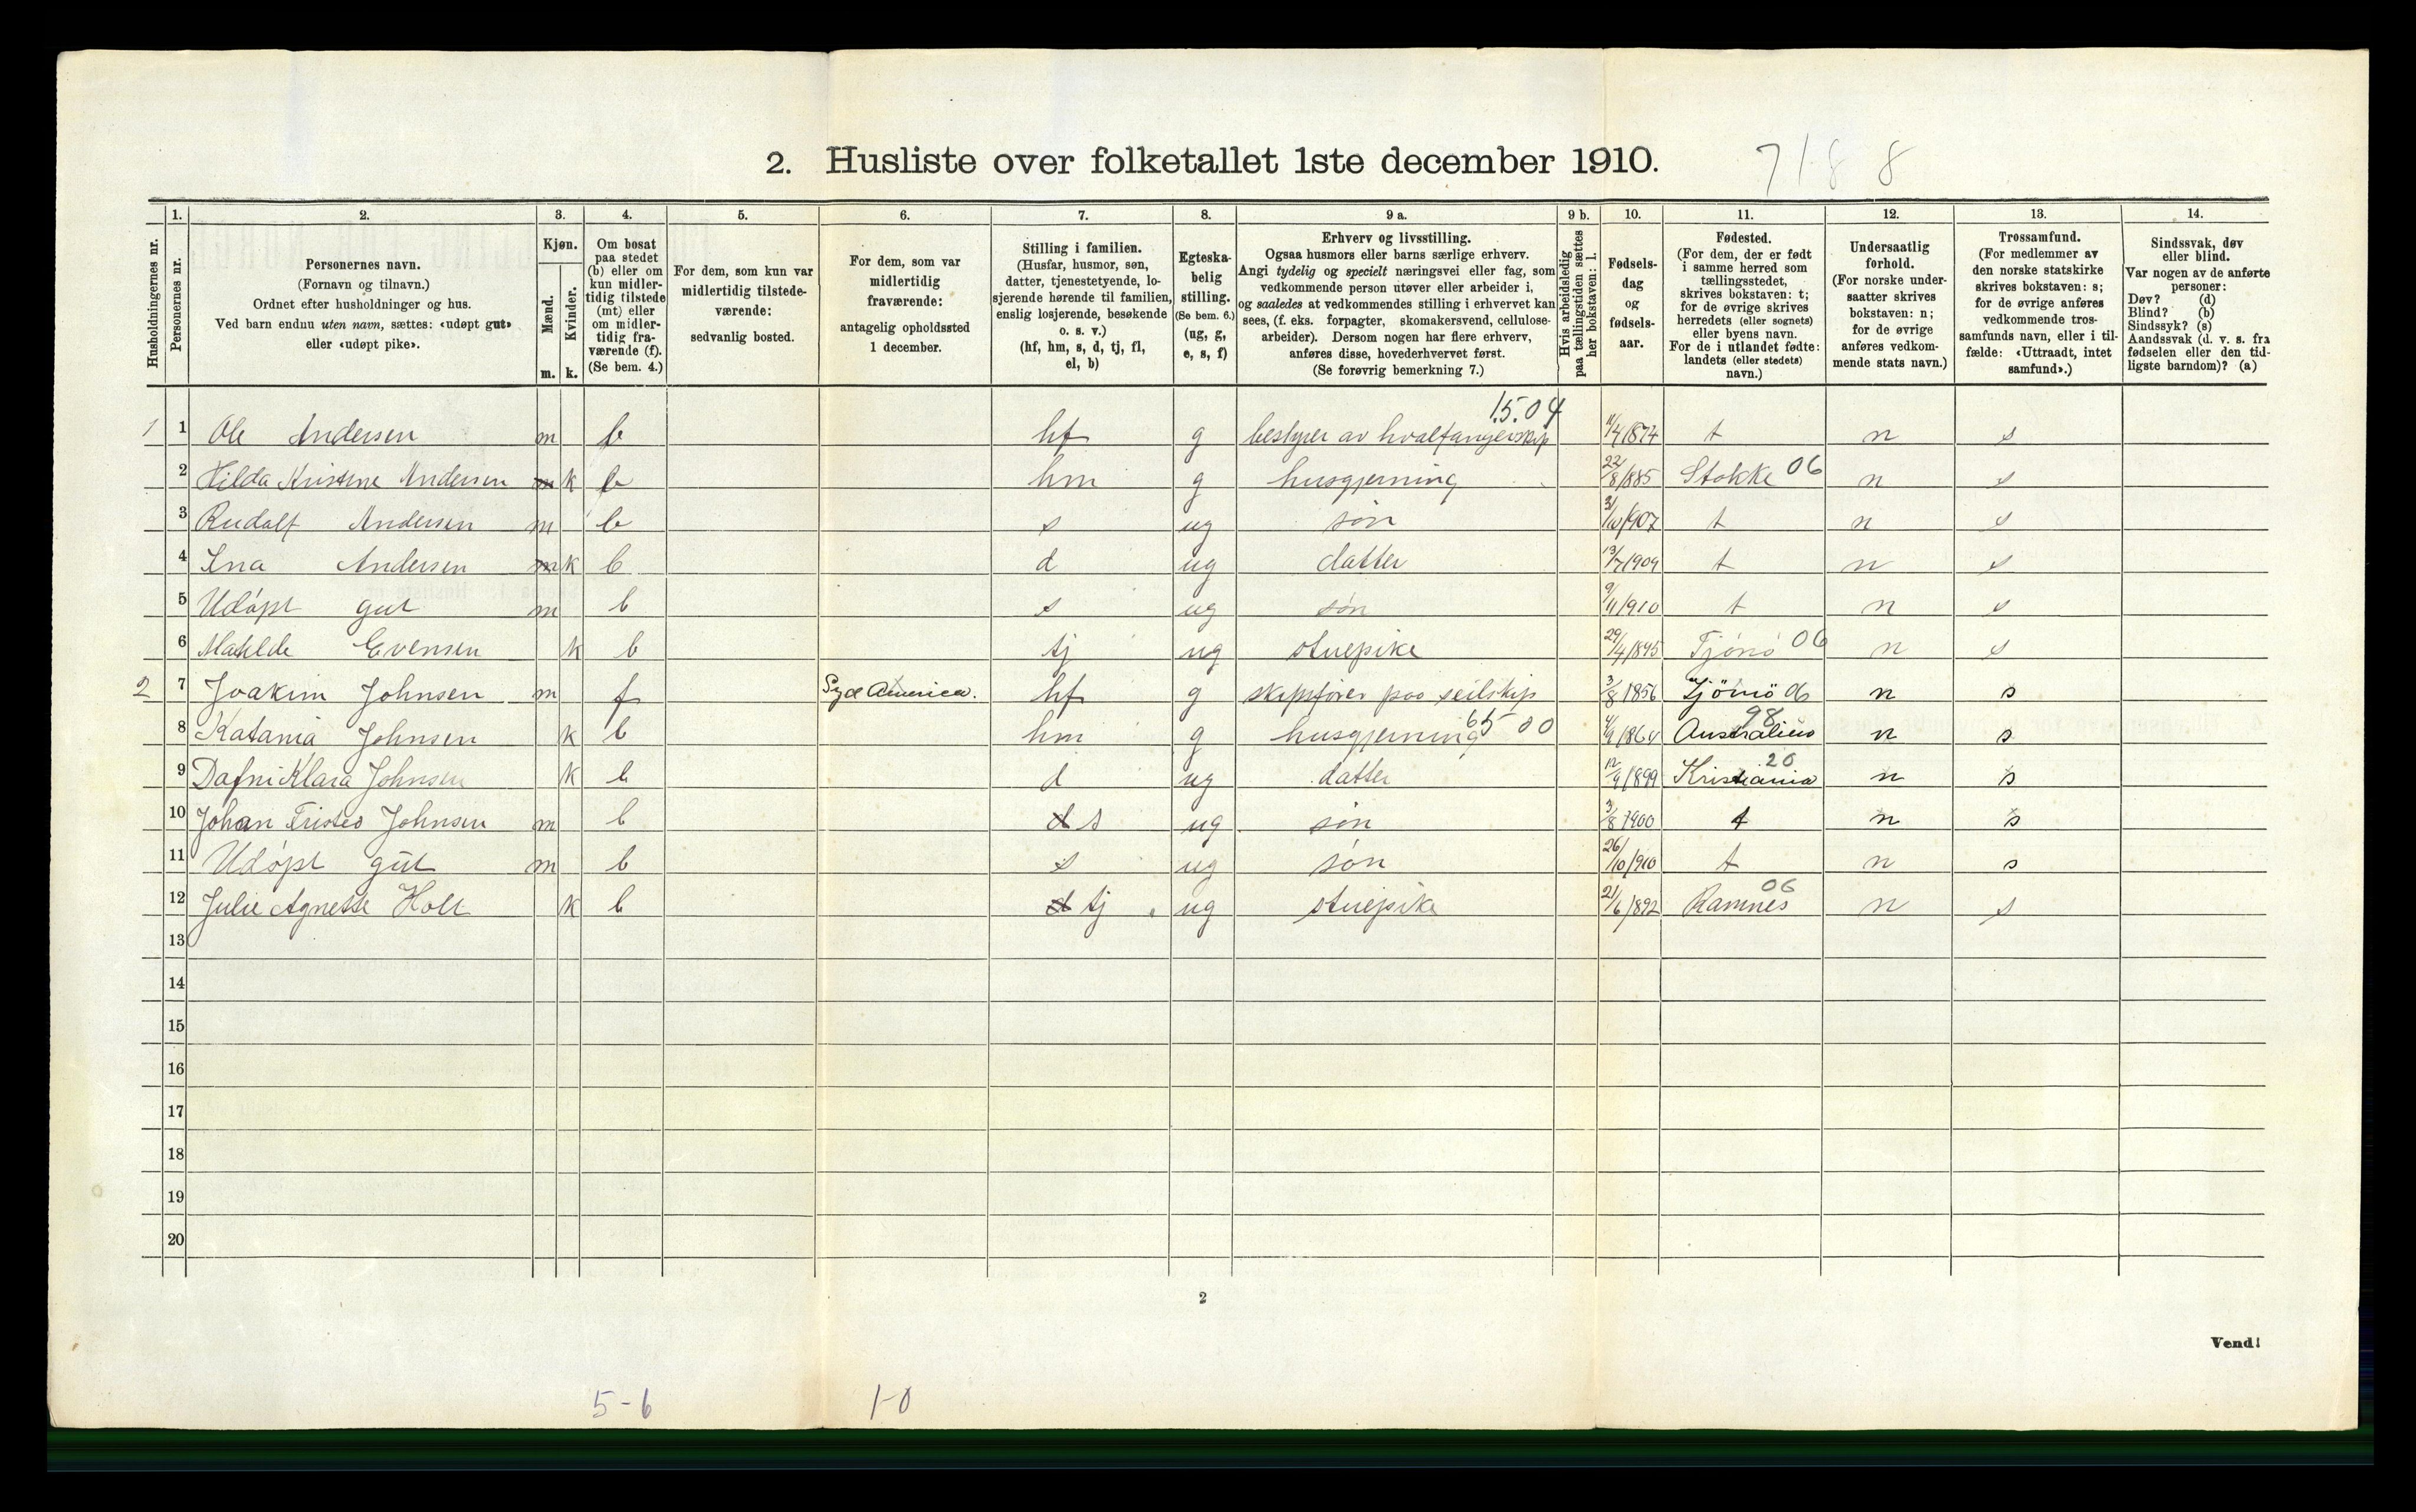 2. Husliste over folketallet 1ste december 1910. 7188
Husholdningernes nr.
1. Personernes nr.
2. Personernes navn.
(Fornavn og tilnavn.)
Ordnet efter husholdninger og hus.
Ved barn endnu uten navn, sættes: «udøpt gut»
eller «udøpt pike».
3. Kjøn.
Mænd. Kvinder.
m. k.
4. Om bosat
paa stedet
(b) eller om
kun midler-
tidig tilstede
(mt) eller
om midler-
tidig fra-
værende (f).
(Se bem. 4.)
5. For dem, som kun var
midlertidig tilstede-
værende:
sedvanlig bosted.
6. For dem, som var
midlertidig
fraværende:
antagelig opholdssted
1 december.
7. Stilling i familien.
(Husfar, husmor, søn,
datter, tjenestetyende, lo-
sjerende hørende til familien,
enslig losjerende, besøkende
o. s. v.)
(hf, hm, s, d, tj, fl,
el, b)
8. Egteska-
belig
stilling.
(Se bem. 6.)
(ug, g,
e, s, f)
9 a. Erhverv og livsstilling.
Ogsaa husmors eller barns særlige erhverv.
Angi tydelig og specielt næringsvei eller fag, som
vedkommende person utøver eller arbeider i,
og saaledes at vedkommendes stilling i erhvervet kan
sees, (f. eks. forpagter, skomakersvend, cellulose-
arbeider). Dersom nogen har flere erhverv,
anføres disse, hovederhvervet først.
(Se forøvrig bemerkning 7.)
9 b. Hvis arbeidsledig
paa tællingstiden sættes
her bokstaven: l.
10. Fødsels-
dag
og
fødsels-
aar.
11. Fødested.
(For dem, der er født
i samme herred som
tællingsstedet,
skrives bokstaven: t;
for de øvrige skrives
herredets (eller sognets)
eller byens navn.
For de i utlandet fødte:
landets (eller stedets)
navn.)
12. Undersaatlig
forhold.
(For norske under-
saatter skrives
bokstaven: n;
for de øvrige
anføres vedkom-
mende stats navn.)
13. Trossamfund.
(For medlemmer av
den norske statskirke
skrives bokstaven: s;
for de øvrige anføres
vedkommende tros-
samfunds navn, eller i til-
fælde: «Uttraadt, intet
samfund».)
14. Sindssvak, døv
eller blind.
Var nogen av de anførte
personer:
Døv? (d)
Blind? (b)
Sindssyk? (s)
Aandssvak (d. v. s. fra
fødselen eller den tid-
ligste barndom)? (a)
15.04
1 1 Ole Andersen m b hf g bestyrer av hvalfangerskip 11/4 1874 t n s
2 Hilda Kristine Andersen m k b hm g husgjerning 22/8 1885 Stokke 06 n s
3 Rudolf Andersen m b s ug søn 31/10 1907 t n s
4 Ina Andersen m k b d ug datter 13/7 1909 t n s
5 Udøpt gut m b s ug søn 9/11 1910 t n s
6 Matilde Evensen k b tj ug stuepike 29/4 1895 Tjømø 06 n s
2 7 Joakim Johnsen m f Syd America. hf g skipsfører paa seilskip 3/8 1856 Tjømø 06 n s
65 00 98
8 Katania Johnsen k b hm g husgjerning 4/9 1864 Australien n s
20
9 Dafni Klara Johnsen k b d ug datter 12/9 1899 Kristiania n s
10 Johan Tristeo Johnsen m b d s ug søn 3/8 1900 t n s
11 Udøpt gut m b s ug søn 26/10 1910 t n s
06
12 Julie Agnette Holt k b d tj ug stuepike 21/6 1892 Ramnes n s
13
14
15
16
17
18
19
20
2
Vend!
5-6 1-0